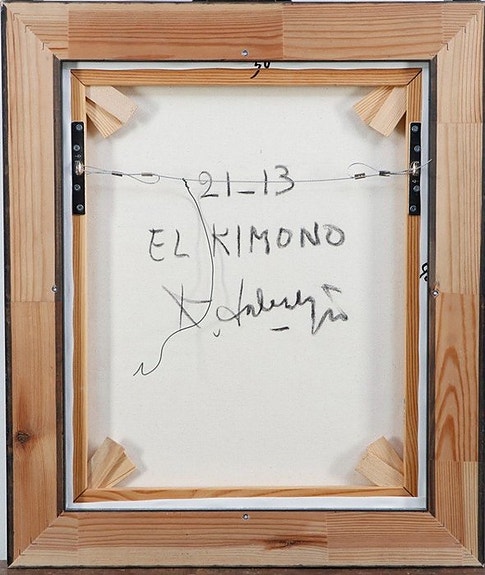 50
21-13
EL KIMONO